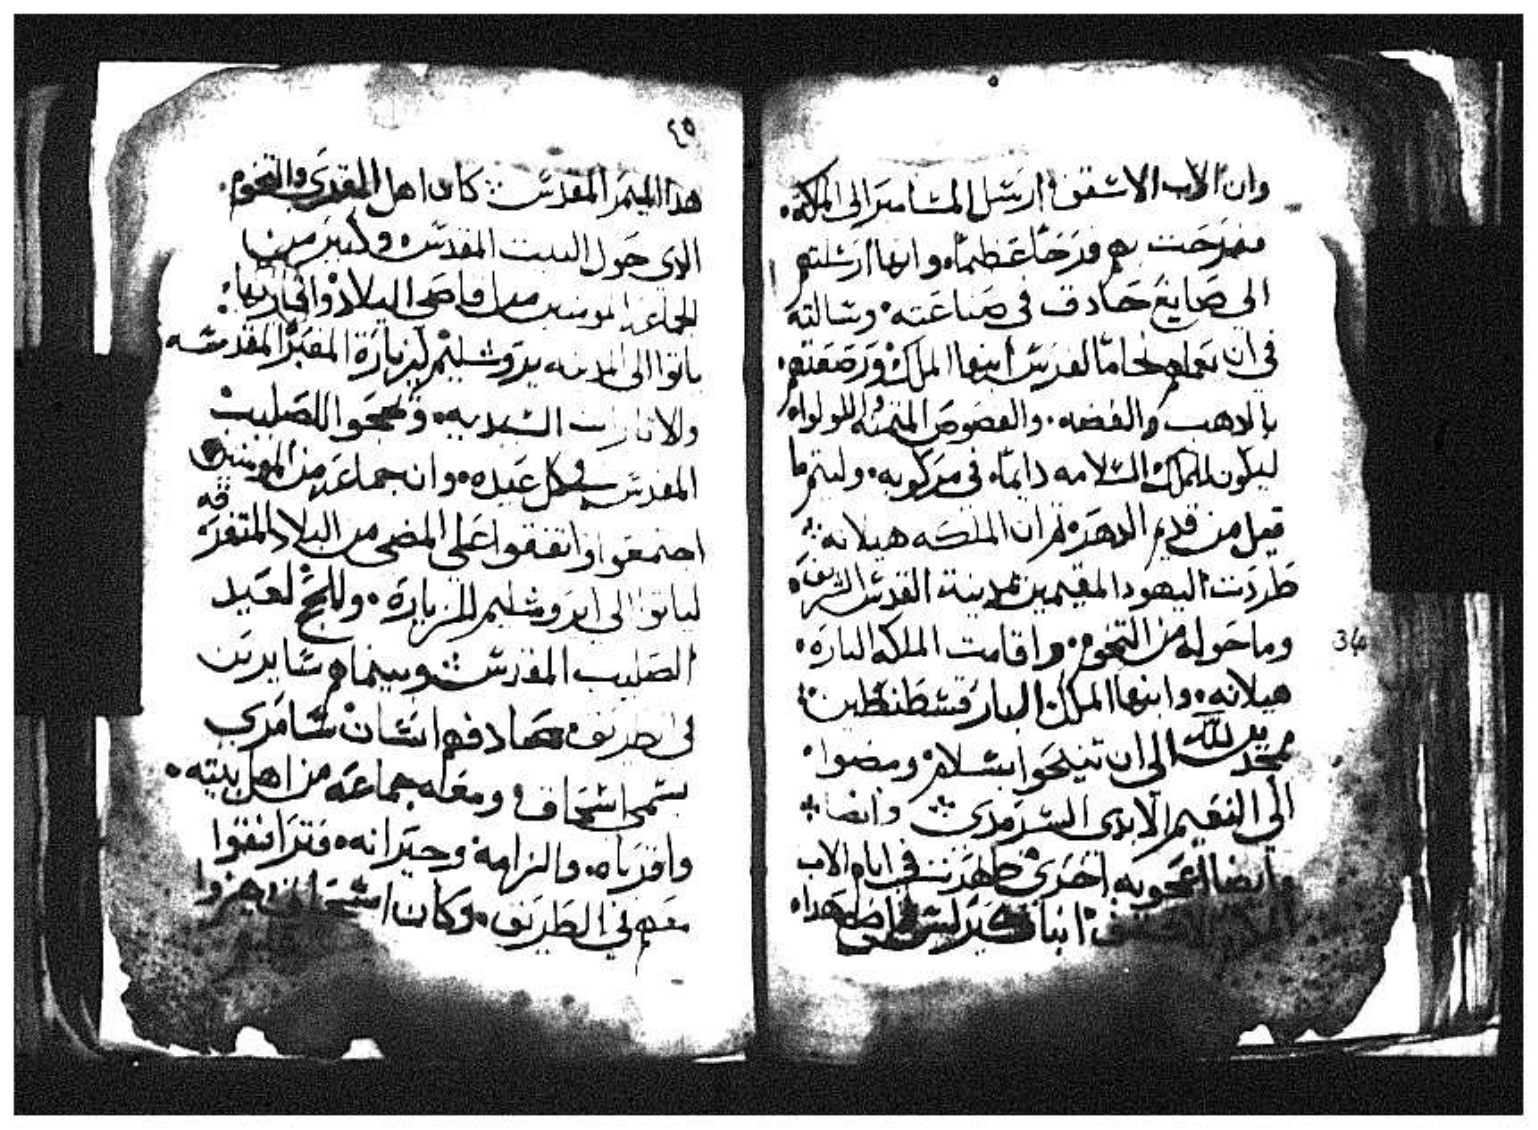 وان الاب الاسقف ارسل المسامير الى الملكه
ففرحت بهم فرحًا عظيمًا وانها ارسلتهم
الى صايغ حاذق في صناعته وسالته
في ان يعملهم لجامًا لفرس ابنها الملك ورصعتهم
بالدهب والفضه والفصوص المثمنه اللولوا
ليكون للملك السلامه دايمًا في مركوبه وليتم ما
قيل من قديم الدهر ثم ان الملكه هيلانه
طردت اليهود المقيمين بمدينة القدس الشريف
وما حوله من التخوم واقامت الملكه الباره
هيلانه وابنها الملك البار قسطنطين
ممجدين لله الى ان تنيحوا بسلام ومضوا
الي النعيم الابدي السرمدي وايضا
وايضا اعجوبه اخري ظهرت في ايام الاب
انبا كيرلس هدا
34
٤٥
هدا الميمر المقدس كان اهل القدس والتخوم
الدي حول البيت المقدس وكتير من
الجماعه المومنين من اقاصي البلاد واقاربها
ياتوا الى المدينه يروشليم لزيارة المقبرا المقدسه
والاتارات السيديه ويحجوا للصليب
المقدس في كل عيده وان جماعه من المومنين
اجتمعوا واتفقوا على المضي من البلاد المتفرقه
لياتوا الى ايروشليم للزيارة وللحج لعيد
الصليب المقدس وبينماهم سايرين
في الطريق صادفهم انسان سامري
يسمى اسحاق ومعه جماعه من اهل بيته
واقرباه والزامه وجيرانه وترافقوا
معهم في الطريق وكان اسحاق يهزوا